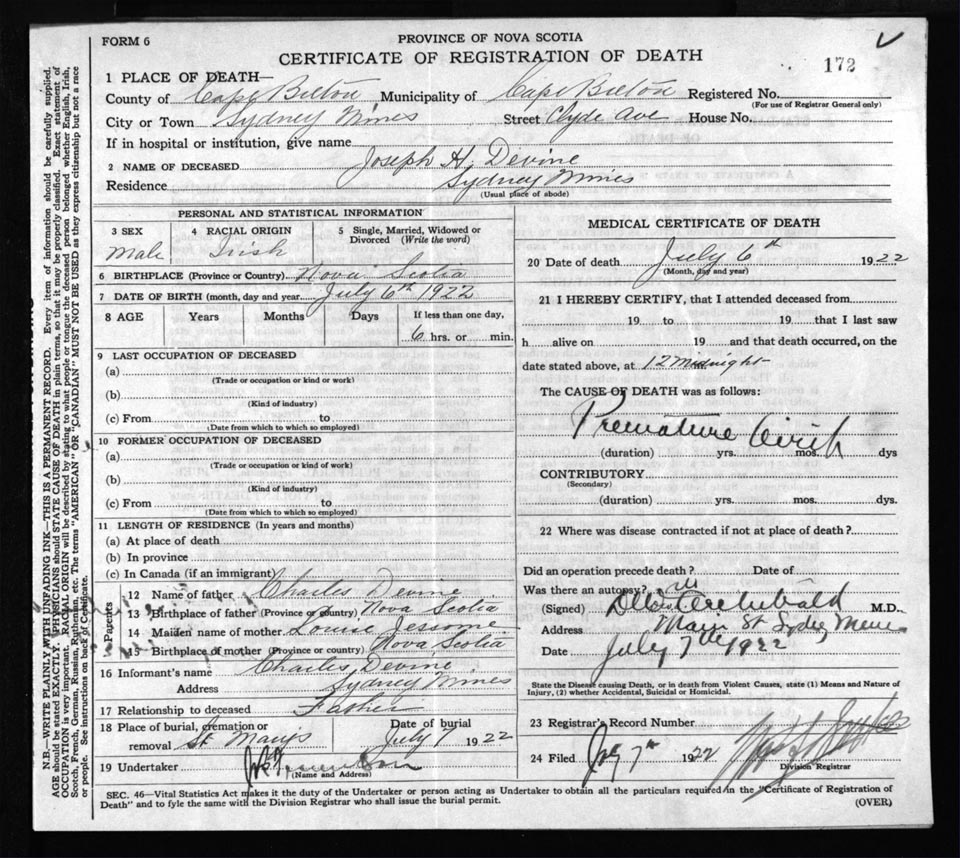 FORM 6
PROVINCE OF NOVA SCOTIA
CERTIFICATE OF REGISTRATION OF DEATH
172
1 PLACE OF DEATH—
County of Cape Breton Municipality of Cape Breton Registered No.
(For use of Registrar General only)
City or Town Sydney Mines Street Clyde Ave House No.
If in hospital or institution, give name
2 NAME OF DECEASED Joseph H. Devine
Residence Sydney Mines
(Usual place of abode)
PERSONAL AND STATISTICAL INFORMATION
3 SEX 4 RACIAL ORIGIN 5 Single, Married, Widowed or Divorced (Write the word)
Male Irish
6 BIRTHPLACE (Province or Country) Nova Scotia
7 DATE OF BIRTH (month, day and year) July 6th 1922
8 AGE Years Months Days If less than one day,
6 hrs. or min.
9 LAST OCCUPATION OF DECEASED
(a)
(Trade or occupation or kind or work)
(b)
(Kind of industry)
(c) From to
(Date from which to which so employed)
10 FORMER OCCUPATION OF DECEASED
(a)
(Trade or occupation or kind of work)
(b)
(Kind of industry)
(c) From to
(Date from which to which so employed)
11 LENGTH OF RESIDENCE (In years and months)
(a) At place of death
(b) In province
(c) In Canada (if an immigrant)
Parents
12 Name of father Charles Devine
13 Birthplace of father (Province or country) Nova Scotia
14 Maiden name of mother Louise Jessome
15 Birthplace of mother (Province or country) Nova Scotia
16 Informant's name Charles Devine
Address Sydney Mines
17 Relationship to deceased Father
18 Place of burial, cremation or removal St Marys Date of burial July 7 1922
19 Undertaker
(Name and Address)
MEDICAL CERTIFICATE OF DEATH
20 Date of death July 6th 1922
(Month, day and year)
21 I HEREBY CERTIFY, that I attended deceased from
19 to 19 that I last saw
h alive on 19 and that death occurred, on the
date stated above, at 12 Midnight
The CAUSE OF DEATH was as follows:
Premature Birth
(duration) yrs. mos. dys
CONTRIBUTORY
(Secondary)
(duration) yrs. mos. dys.
22 Where was disease contracted if not at place of death?
Did an operation precede death? Date of
Was there an autopsy? no
(Signed) Archibald M.D.
Address Main St Sydney Mines
Date July 7th 1922
State the Disease causing Death, or in death from Violent Causes, state (1) Means and Nature of
Injury, (2) whether Accidental, Suicidal or Homicidal.
23 Registrar's Record Number
24 Filed July 7th 1922
Division Registrar
SEC. 46—Vital Statistics Act makes it the duty of the Undertaker or person acting as Undertaker to obtain all the particulars required in the "Certificate of Registration of
Death" and to fyle the same with the Division Registrar who shall issue the burial permit.
(OVER)
N.B.—WRITE PLAINLY WITH UNFADING INK—THIS IS A PERMANENT RECORD. Every item of information should be carefully supplied.
AGE should be stated EXACTLY. PHYSICIANS should STATE CAUSE OF DEATH in plain terms, so that it may be properly classified. Exact statement of
OCCUPATION is very important. RACIAL ORIGIN will be described by stating to what people or tongue the deceased person belonged whether English, Irish,
Scotch, French, German, Russian, Ruthenian, etc. The terms "AMERICAN" OR "CANADIAN" MUST NOT BE USED as they express citizenship but not a race
or people. See instructions on back of Certificate.